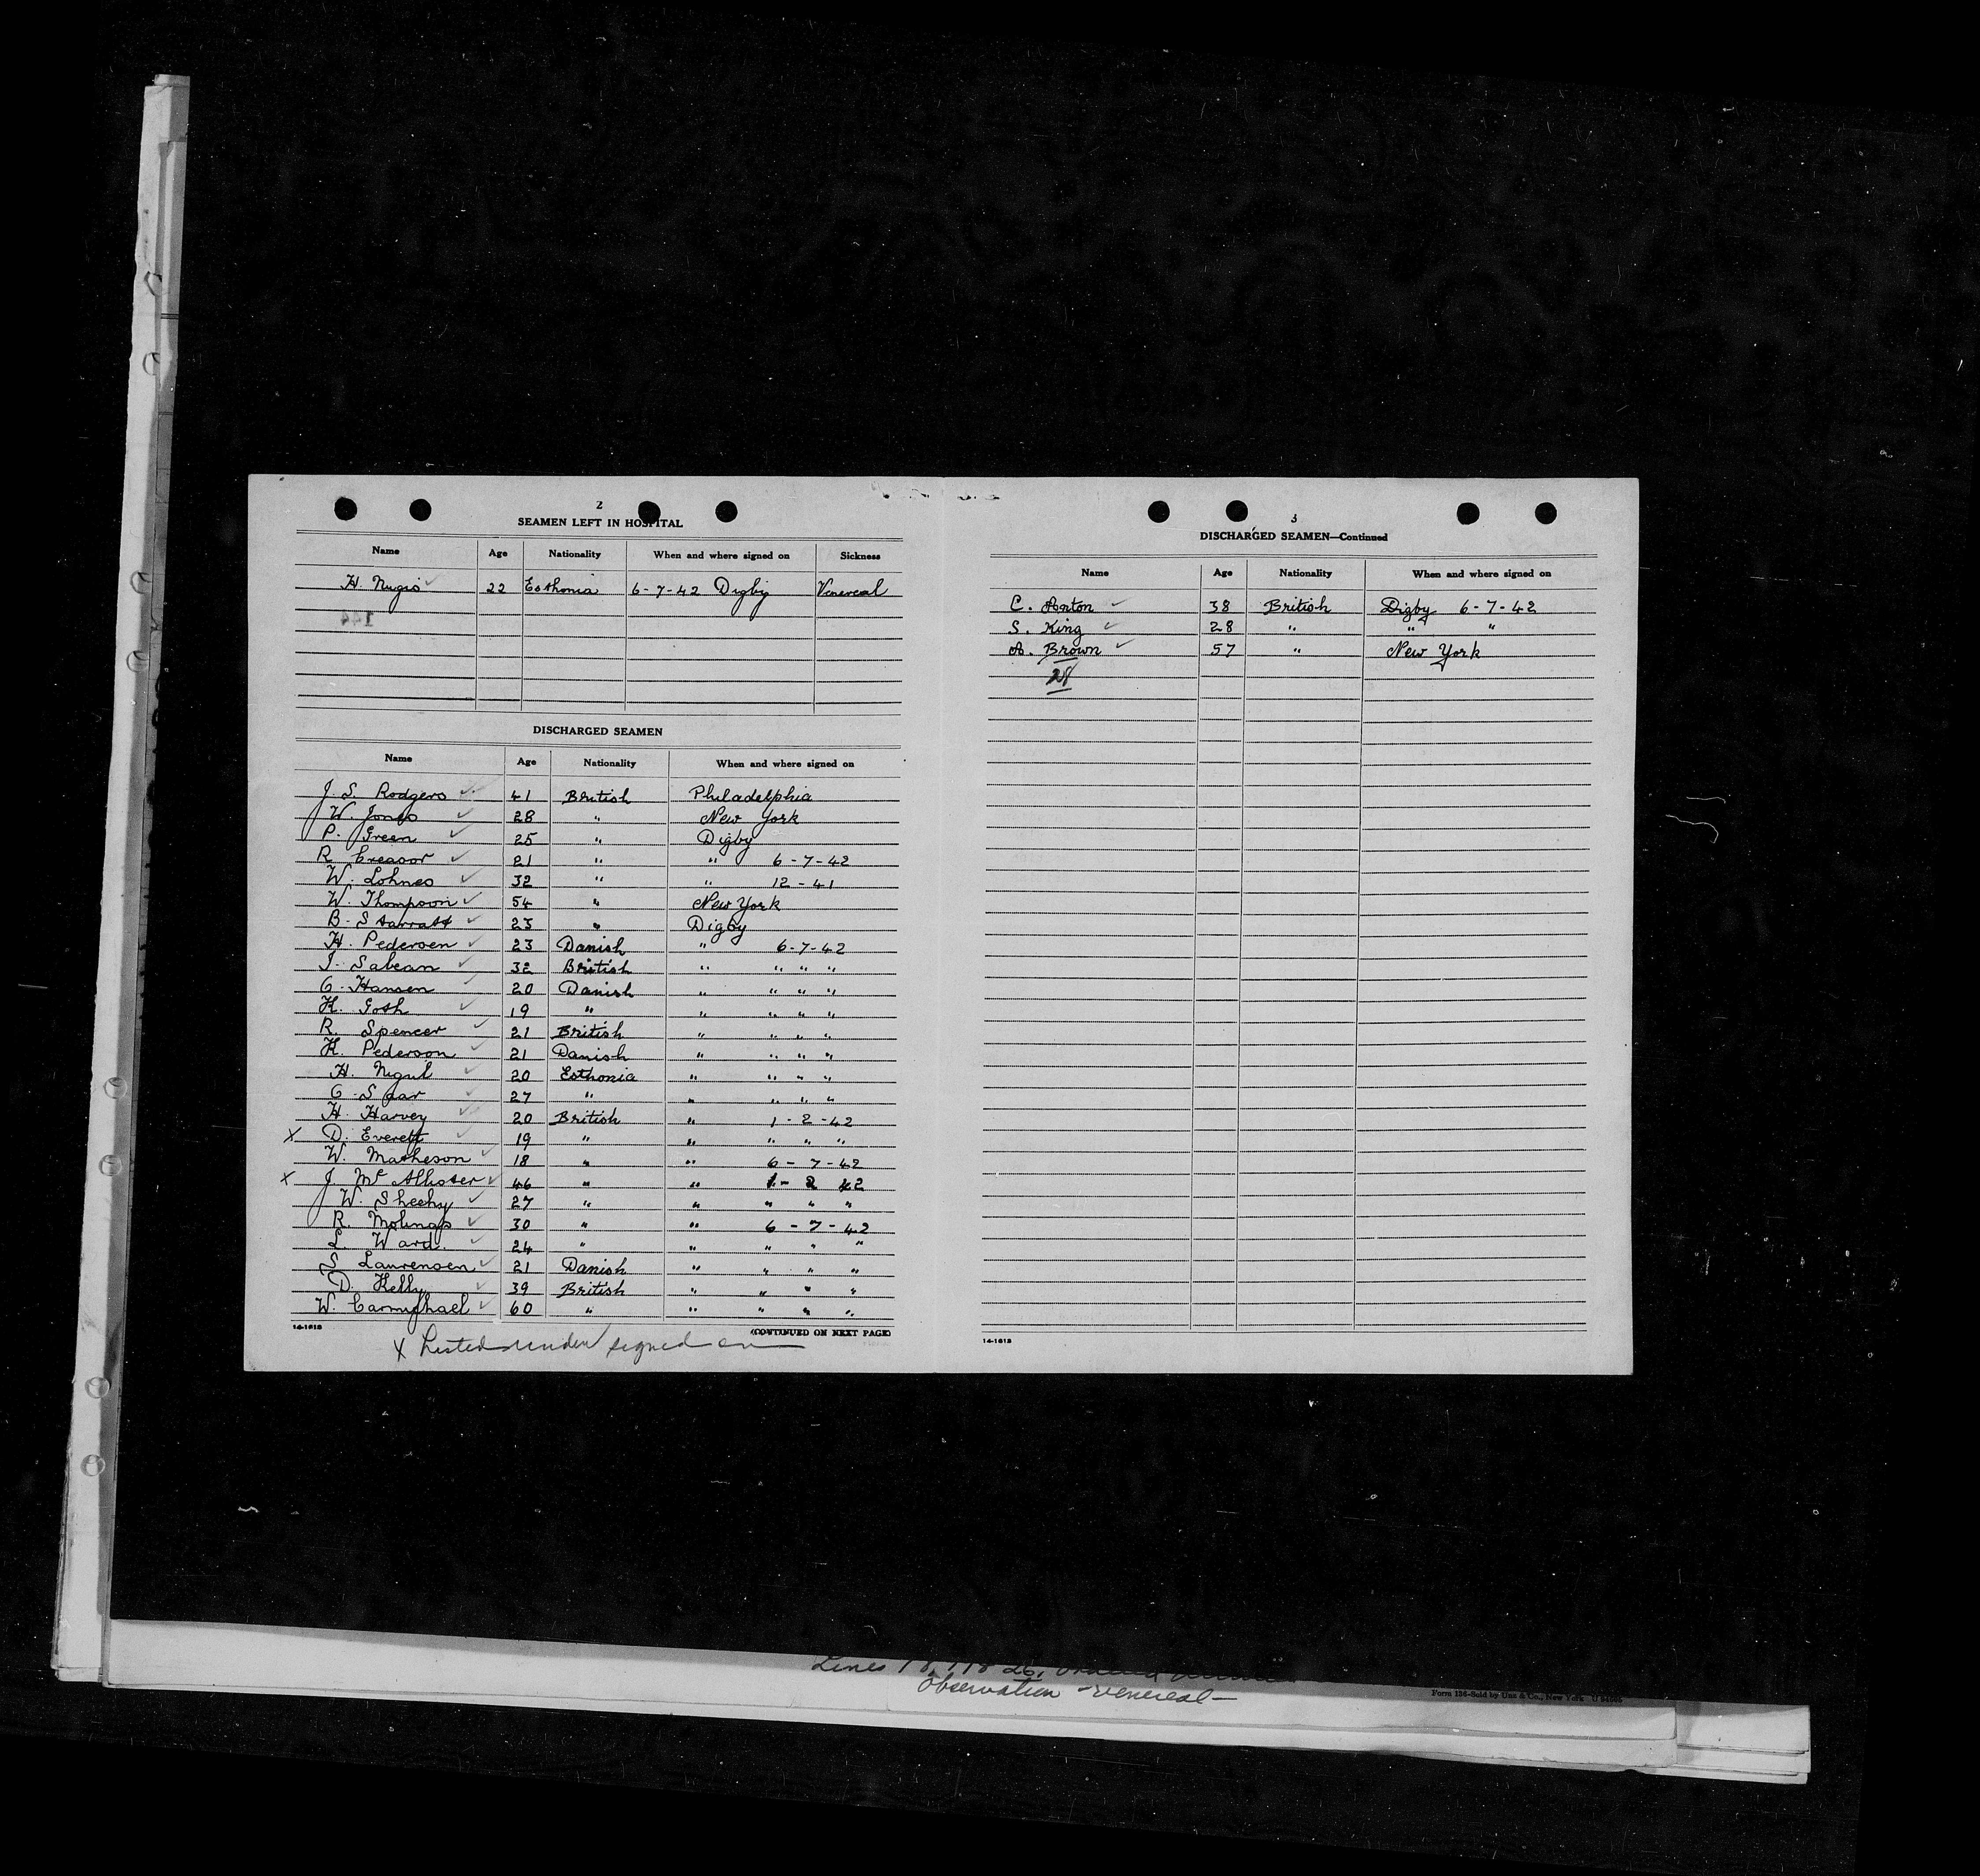 2
SEAMEN LEFT IN HOSPITAL
Name Age Nationality When and where signed on Sickness
H. Nugis 22 Esthonia 6-7-42 Digby Venereal
144
DISCHARGED SEAMEN
Name Age Nationality When and where signed on
J. S. Rodgers 41 British Philadelphia
W. Jones 28 " New York
P. Green 25 " Digby
R. Creasor 21 " " 6-7-42
W. Lohnes 32 " " 12-41
W. Thompson 54 " New York
B. Starratt 23 " Digby
H. Pedersen 23 Danish " 6-7-42
J. Sabean 32 British " " " "
O. Hansen 20 Danish " " " "
K. Goth 19 " " " " "
R. Spencer 21 British " " " "
K. Pederson 21 Danish " " " "
H. Nigul 20 Esthonia " " " "
O. Saar 27 " " " " "
H. Harvey 20 British " 1-2-42
X D. Everett 19 " " " " "
W. Matheson 18 " " 6-7-42
X J. Mc Allister 46 " " 1-2 42
W. Sheehy 27 " " " " "
R. 30 " " 6-7-42
L. Ward. 24 " " " " "
S. Laurensen 21 Danish " " " "
D. Kelly 39 British " " " "
W. Carmichael 60 " " " " "
14-1618 (CONTINUED ON NEXT PAGE)
X Listed under signed on
3
DISCHARGED SEAMEN—Continued
Name Age Nationality When and where signed on
C. 38 British Digby 6-7-42
S. King 28 " " "
A. Brown 57 " New York
28
14-1618
Lines
Observation - venereal -
Form 136-Sold by Unz & Co., New York